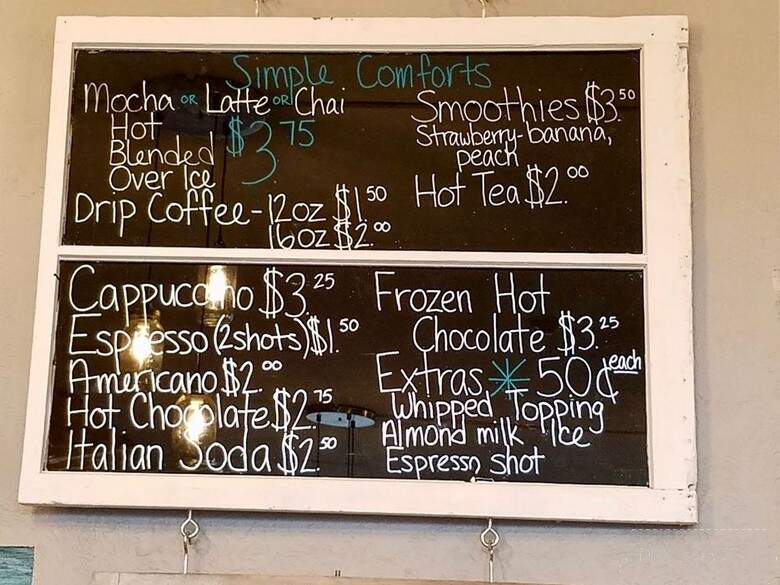 Simple Comforts
Mocha OR Latte OR Chai
Hot
Blended
Over Ice
$3.75
Drip Coffee-12oz $1.50
16oz $2.00
Smoothies $3.50
Strawberry-banana,
peach
Hot Tea $2.00
Cappuccino $3.25
Espresso (2shots) $1.50
Americano $2.00
Hot Chocolate $2.75
Italian Soda $2.50
Frozen Hot
Chocolate $3.25
Extras * 50¢ each
Whipped Topping
Almond milk Ice
Espresso shot